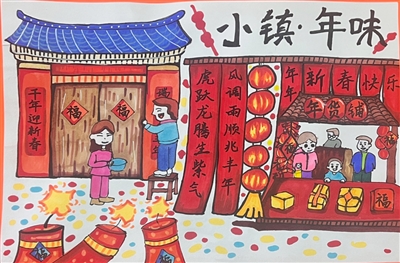 小镇·年味
千年迎新春
福
福
虎跃龙腾生紫气
风调雨顺兆丰年
年年
新春快乐
年货铺
福
福
福